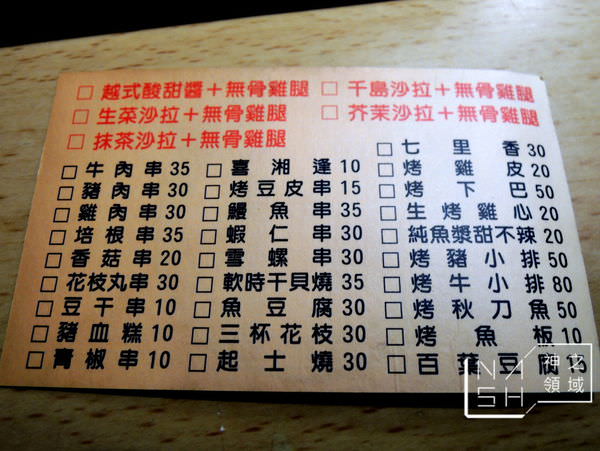 □ 越式酸甜醬＋無骨雞腿 □ 千島沙拉＋無骨雞腿
□ 生菜沙拉＋無骨雞腿 □ 芥茉沙拉＋無骨雞腿
□ 抹茶沙拉＋無骨雞腿
□ 牛肉串 35 □ 喜湘逢 10 □ 七里香 30
□ 豬肉串 30 □ 烤豆皮串 15 □ 烤雞皮 20
□ 雞肉串 30 □ 鰻魚串 35 □ 烤下巴 50
□ 培根串 35 □ 蝦仁串 30 □ 生烤雞心 20
□ 香菇串 20 □ 雪螺串 30 □ 純魚漿甜不辣 20
□ 花枝丸串 30 □ 軟時干貝燒 35 □ 烤豬小排 50
□ 豆干串 10 □ 魚豆腐 30 □ 烤牛小排 80
□ 豬血糕 10 □ 三杯花枝 30 □ 烤秋刀魚 50
□ 青椒串 10 □ 起士燒 30 □ 烤魚板 10
□ 百葉豆腐
NASH 神之領域